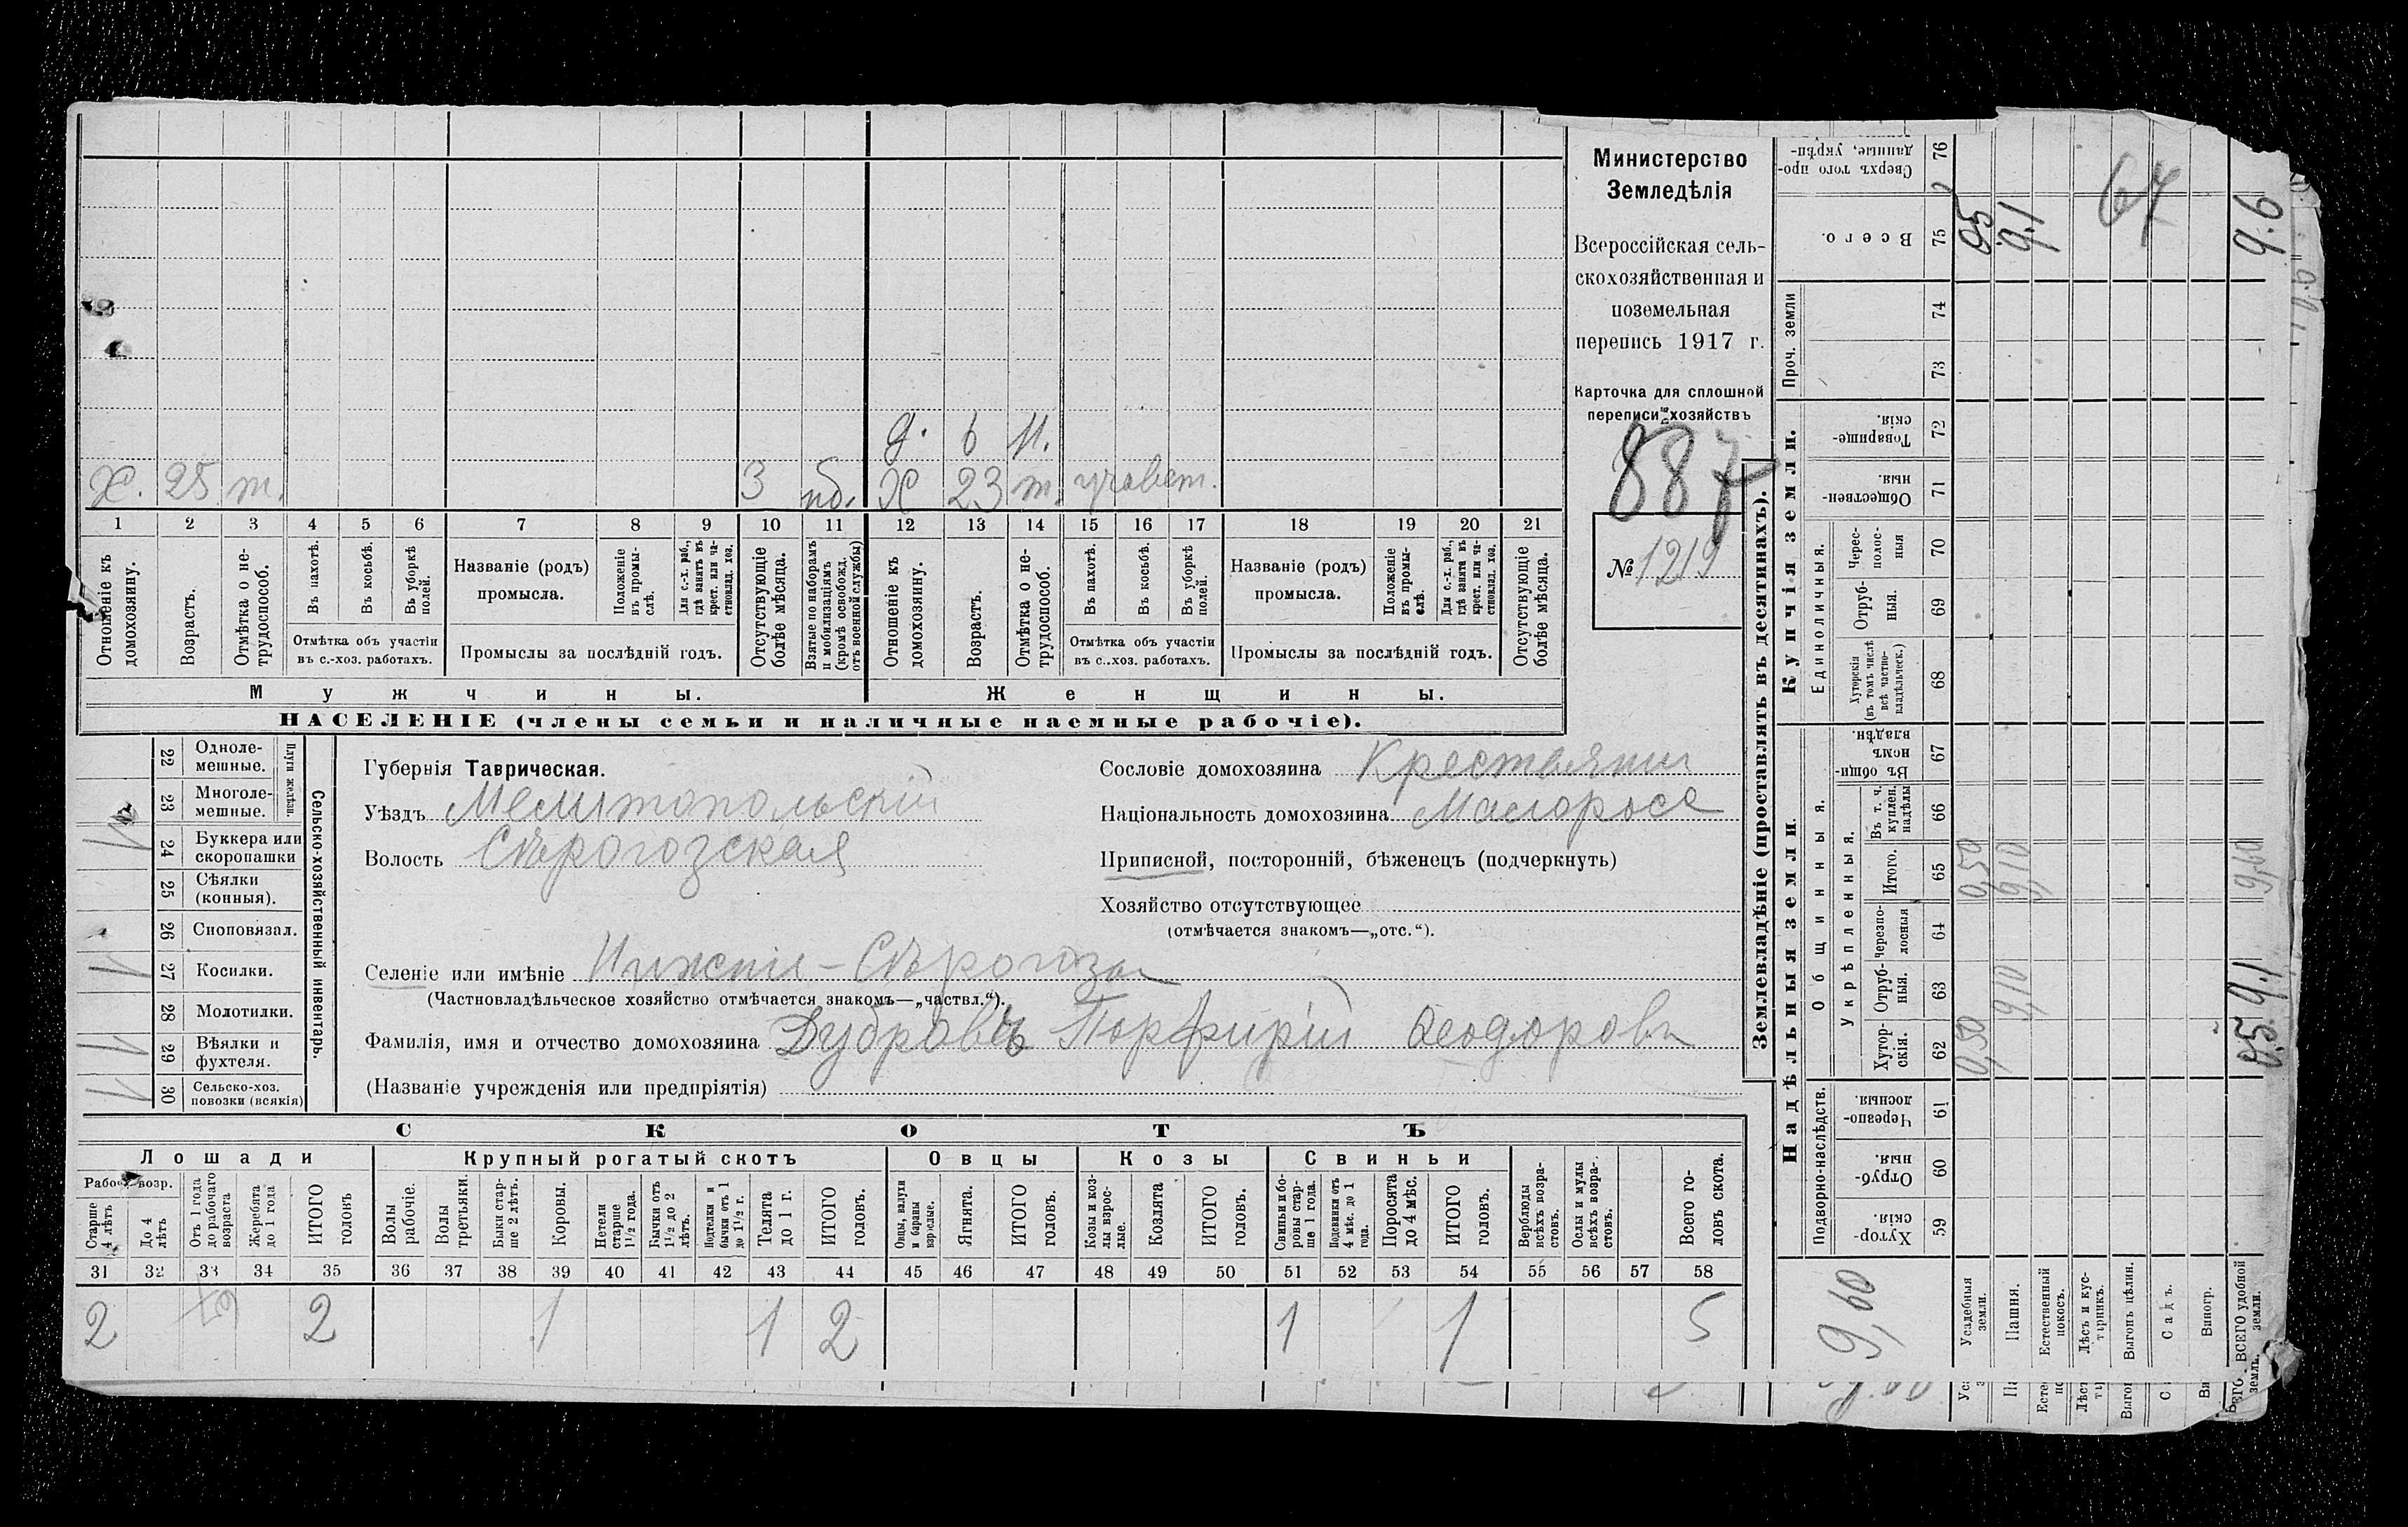 Министерство
Земледѣлія
Всероссійская сель-
скохозяйственная и
поземельная
перепись 1917 г.
Карточка для сплошной
переписи хозяйствъ
887
№ 1219
д. 6 н.
Х. 25 т. 3 Х 23 т. участ.
1 2 3 4 5 6 7 8 9 10 11 12 13 14 15 16 17 18 19 20 21
Отношеніе къ домохозяину.
Возрастъ.
Отмѣтка о не-трудоспособ.
Въ пахотѣ.
Въ косьбѣ.
Въ уборкѣ полей.
Отмѣтка объ участіи
въ с.-хоз. работахъ.
Названіе (родъ)
промысла.
Положеніе въ промы-слѣ.
Для с.-х. раб., гдѣ занятъ въ крест. или ча-стновлад. хоз.
Промыслы за послѣдній годъ.
Отсутствующіе болѣе мѣсяца.
Взятые по наборамъ и мобилизаціямъ (кромѣ освобожд. отъ военной службы)
Отношеніе къ домохозяину.
Возрастъ.
Отмѣтка о не-трудоспособ.
Въ пахотѣ.
Въ косьбѣ.
Въ уборкѣ полей.
Отмѣтка объ участіи
въ с..хоз. работахъ.
Названіе (родъ)
промысла.
Положеніе въ промы-слѣ.
Для с.-х. раб., гдѣ занята въ крест. или ча-стновлад. хоз.
Промыслы за послѣдній годъ.
Отсутствующіе болѣе мѣсяца.
Мужчины. Женщины.
НАСЕЛЕНІЕ (члены семьи и наличные наемные рабочіе).
Сельско-хозяйственный инвентарь.
Плуги желѣзн.
22 Одноле-мешные.
23 Многоле-мешные.
24 Буккера или скоропашки
25 Сѣялки (конныя).
26 Сноповязал.
27 Косилки.
28 Молотилки.
29 Вѣялки и фухтеля.
30 Сельско-хоз. повозки (всякія)
Губернія Таврическая.
Уѣздъ Мелитопольскій
Волость Сѣрогозская
Сословіе домохозяина Крестьянин
Національность домохозяина Малоросс
Приписной, посторонній, бѣженецъ (подчеркнуть)
Хозяйство отсутствующее
(отмѣчается знакомъ—„отс.“).
Селеніе или имѣніе Нижніе-Сѣрогозы
(Частновладѣльческое хозяйство отмѣчается знакомъ—„частвл.“).
Фамилія, имя и отчество домохозяина Дубравъ Порфирій Феодоровъ
(Названіе учрежденія или предпріятія)
СКОТЪ
Лошади Крупный рогатый скотъ Овцы Козы Свиньи
Рабоч. возр.
Старше 4 лѣтъ
До 4 лѣтъ
Отъ 1 года до рабочаго возраста
Жеребята до 1 года
ИТОГО головъ
Волы рабочіе.
Волы третьяки.
Быки стар-ше 2 лѣтъ.
Коровы.
Нетели старше 1½ года.
Бычки отъ 1½ до 2 лѣтъ.
Подтелки и бычки отъ 1 до 1½ г.
Телята до 1 г.
ИТОГО головъ.
Овцы, валухи и бараны взрослые.
Ягнята.
ИТОГО головъ.
Козы и коз-лы взрос-лые.
Козлята
ИТОГО головъ.
Свиньи и бо-ровы стар-ше 1 года.
Подсвинки отъ 4 мѣс. до 1 года.
Поросята до 4 мѣс.
ИТОГО головъ.
Верблюды всѣхъ возра-стовъ.
Ослы и мулы всѣхъ возра-стовъ.
Всего го-ловъ скота.
31 32 33 34 35 36 37 38 39 40 41 42 43 44 45 46 47 48 49 50 51 52 53 54 55 56 57 58
2 2 1 1 2 1 1 5
Землевладѣніе (проставлять въ десятинахъ).
Надѣльныя земли. Купчія земли.
Подворно-наслѣдств.
Общинныя.
Укрѣпленныя.
Единоличныя.
Проч. земли
59 Хутор-скія
60 Отруб-ныя.
61 Черезпо-лосныя.
62 Хутор-скія.
63 Отруб-ныя.
64 черезпо-лосныя
65 Итого.
66 Въ т. ч. куплен. надѣлы
67 Въ общин-номъ владѣн.
68 Хуторскія (въ томъ числѣ всѣ частно-владѣльческ.)
69 Отруб-ныя.
70 Черес-полос-ныя
71 Обществен-ныя
72 Товарище-скія
73
74
75 Всего.
76 Сверхъ того про-данные, укрѣп-
9,60
Усадебныя земли. 0,50 0,50
Пашня. 9,10 9,10 9.1
Естественный покосъ.
Лѣсъ и кус-тарникъ.
Выгонъ цѣлин.
Садъ.
Виногр.
ВСЕГО удобной земли. 0.5 9.1 9,60 9.6
67